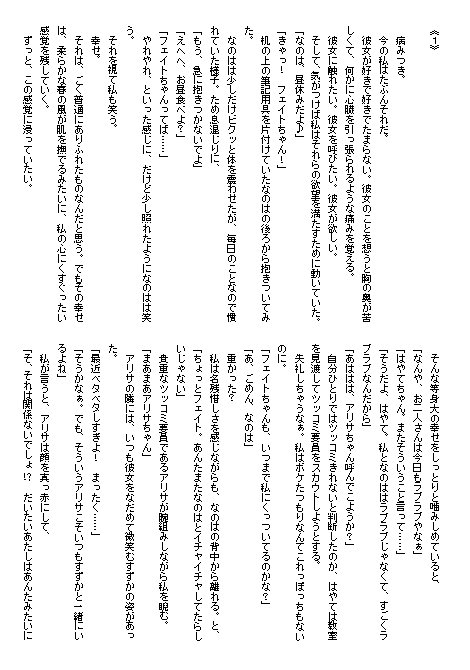 《１》
病みつき。
今の私はたぶんそれだ。
彼女が好きで好きでたまらない。彼女のことを想うと胸の奥が苦
しくて、何かに心臓を引っ張られるような痛みを覚える。
彼女に触れたい。彼女を呼びたい。彼女が欲しい。
そして、気がつけば私はそれらの欲望を満たすために動いていた。
「なのは、昼休みだよ♪」
「きゃっ！　フェイトちゃん！」
机の上の筆記用具を片付けていたなのはの後ろから抱きついてみ
た。
なのはは少しだけビクッと体を震わせたが、毎日のことなので慣
れていた様子。ため息混じりに、
「もう、急に抱きつかないでよ」
「えへへ、お昼食べよ？」
「フェイトちゃんってば……」
やれやれ、といった感じに、だけど少し照れたようになのはは笑
う。
それを視て私も笑う。
幸せ。
それは、ごく普通にありふれたものなんだと思う。でもその幸せ
は、柔らかな春の風が肌を撫でるみたいに、私の心にくすぐったい
感覚を残していく。
ずっと、この感覚に浸っていたい。
そんな等身大の幸せをしっとりと噛みしめていると、
「なんや、お二人さんは今日もラブラブやなぁ」
「はやてちゃん、またそういうこと言って……」
「そうだよ、はやて。私となのははラブラブじゃなくて、すごくラ
ブラブなんだから」
「あははは、アリサちゃん呼んでこようか？」
自分ひとりではツッコミきれないと判断したのか、はやては教室
を見渡してツッコミ要員をスカウトしようとする。
失礼しちゃうなぁ。私はボケたつもりなんてこれっぽっちもない
のに。
「フェイトちゃんも、いつまで私にくっついてるのかな？」
「あ、ごめん、なのは」
重かった？
私は名残惜しさを感じながらも、なのはの背中から離れる。と、
「ちょっとフェイト。あんたまたなのはとイチャイチャしてたらし
いじゃない」
貴重なツッコミ要員であるアリサが腕組みしながら私を睨む。
「まあまあアリサちゃん」
アリサの隣には、いつも彼女をなだめて微笑むすずかの姿があっ
た。
「最近ベタベタしすぎよ！　まったく……」
「そうかなぁ。でも、そういうアリサこそいつもすずかと一緒にい
るよね」
私が言うと、アリサは顔を真っ赤にして、
「そ、それは関係ないでしょ!?　だいたいあたしはあんたみたいに